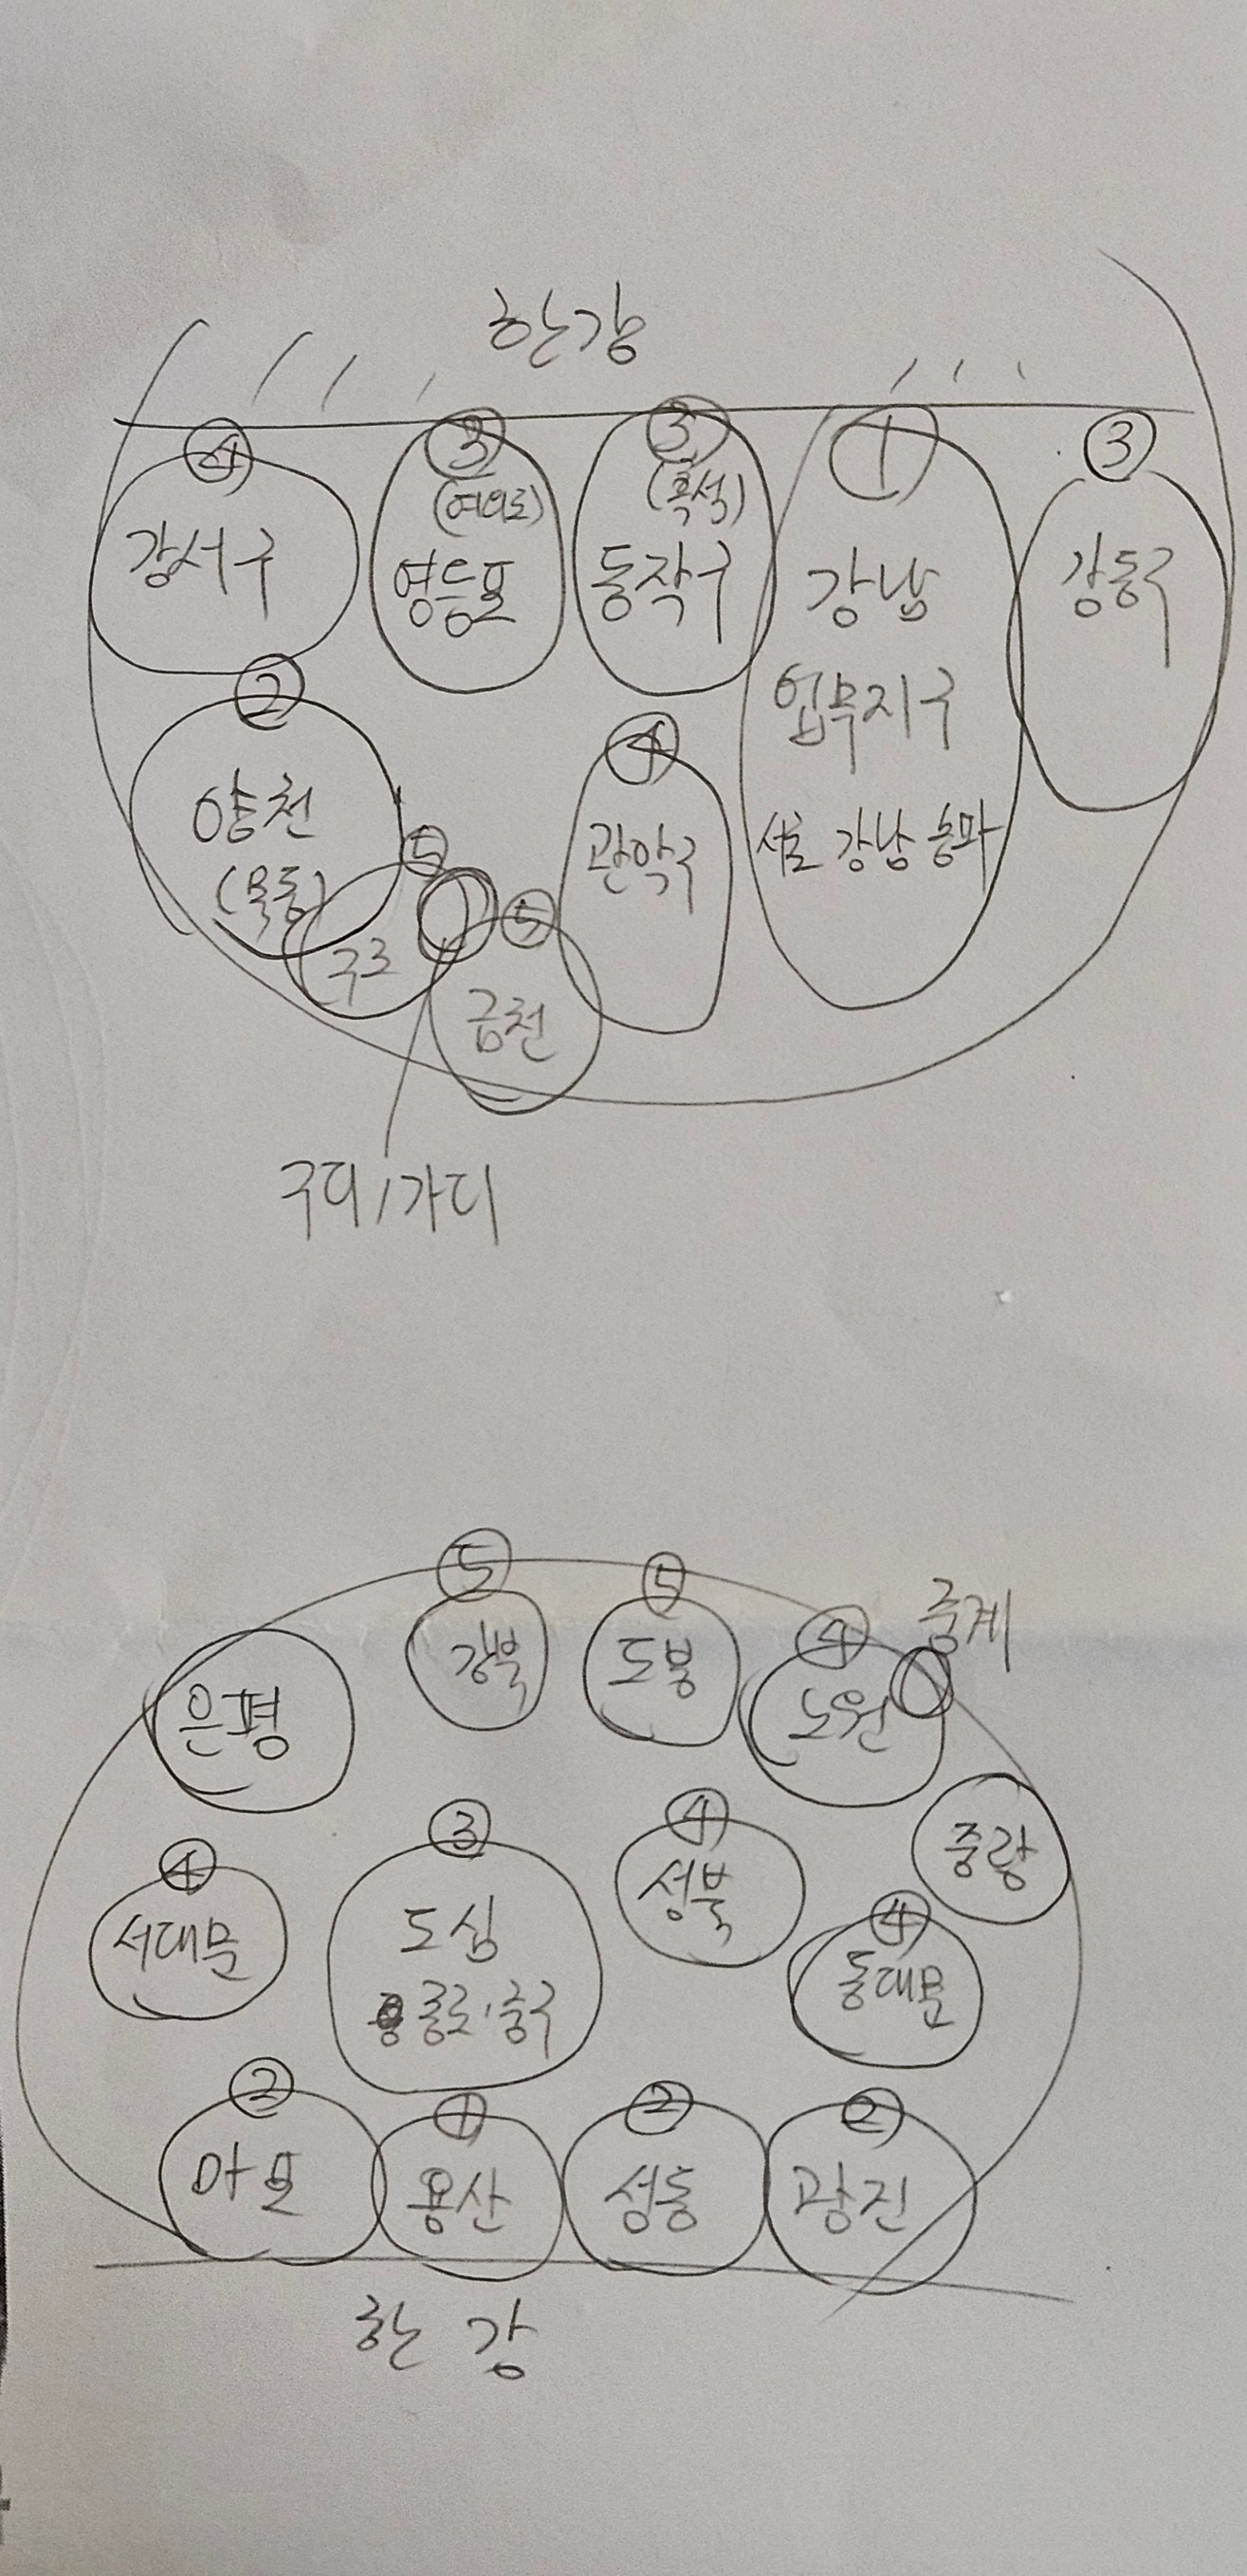 한강
④ ③ ③ ① ③
(여의도) (흑석)
강서구 영등포 동작구 강남 강동구
업무지구
② ④
양천 관악구 서초 강남 송파
(목동) ⑤ ⑤
구로 금천
구디/가디
⑤ ⑤ ④ 중계
은평 강북 도봉 노원
③ ④ 중랑
④ 도심 성북 ④
서대문 종로·중구 동대문
② ① ② ②
마포 용산 성동 광진
한강